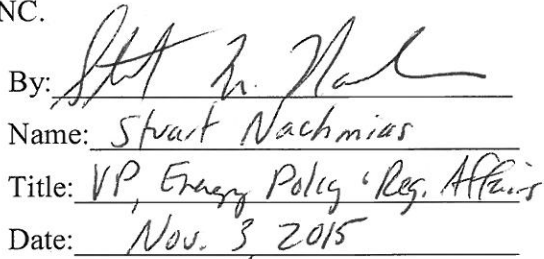 NC.
By: Stuart N. Nachmias
Name: Stuart Nachmias
Title: VP, Energy Policy & Reg. Affairs
Date: Nov. 3 2015